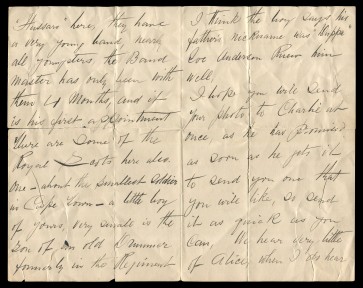 "Hussars" here, they have
a very young band, nearly
all youngsters the Band
master has only been with
them 4 Months, and it
is his first appointment
there are some of the
Royal Scots here also
one - about the smallest soldier
in Cape Town - a little boy
of yours, very small is the
son of an old Drummer
formerly in the Regiment
I think the boy says his
father's nickname was
Coe Anderson knew him
well,
I hope you will send
your photo to Charlie at
once as he has promised
as soon as he gets it
to send you one that
you will like, so send
it as quick as you
can. We hear very little
of Alice, when I do hear